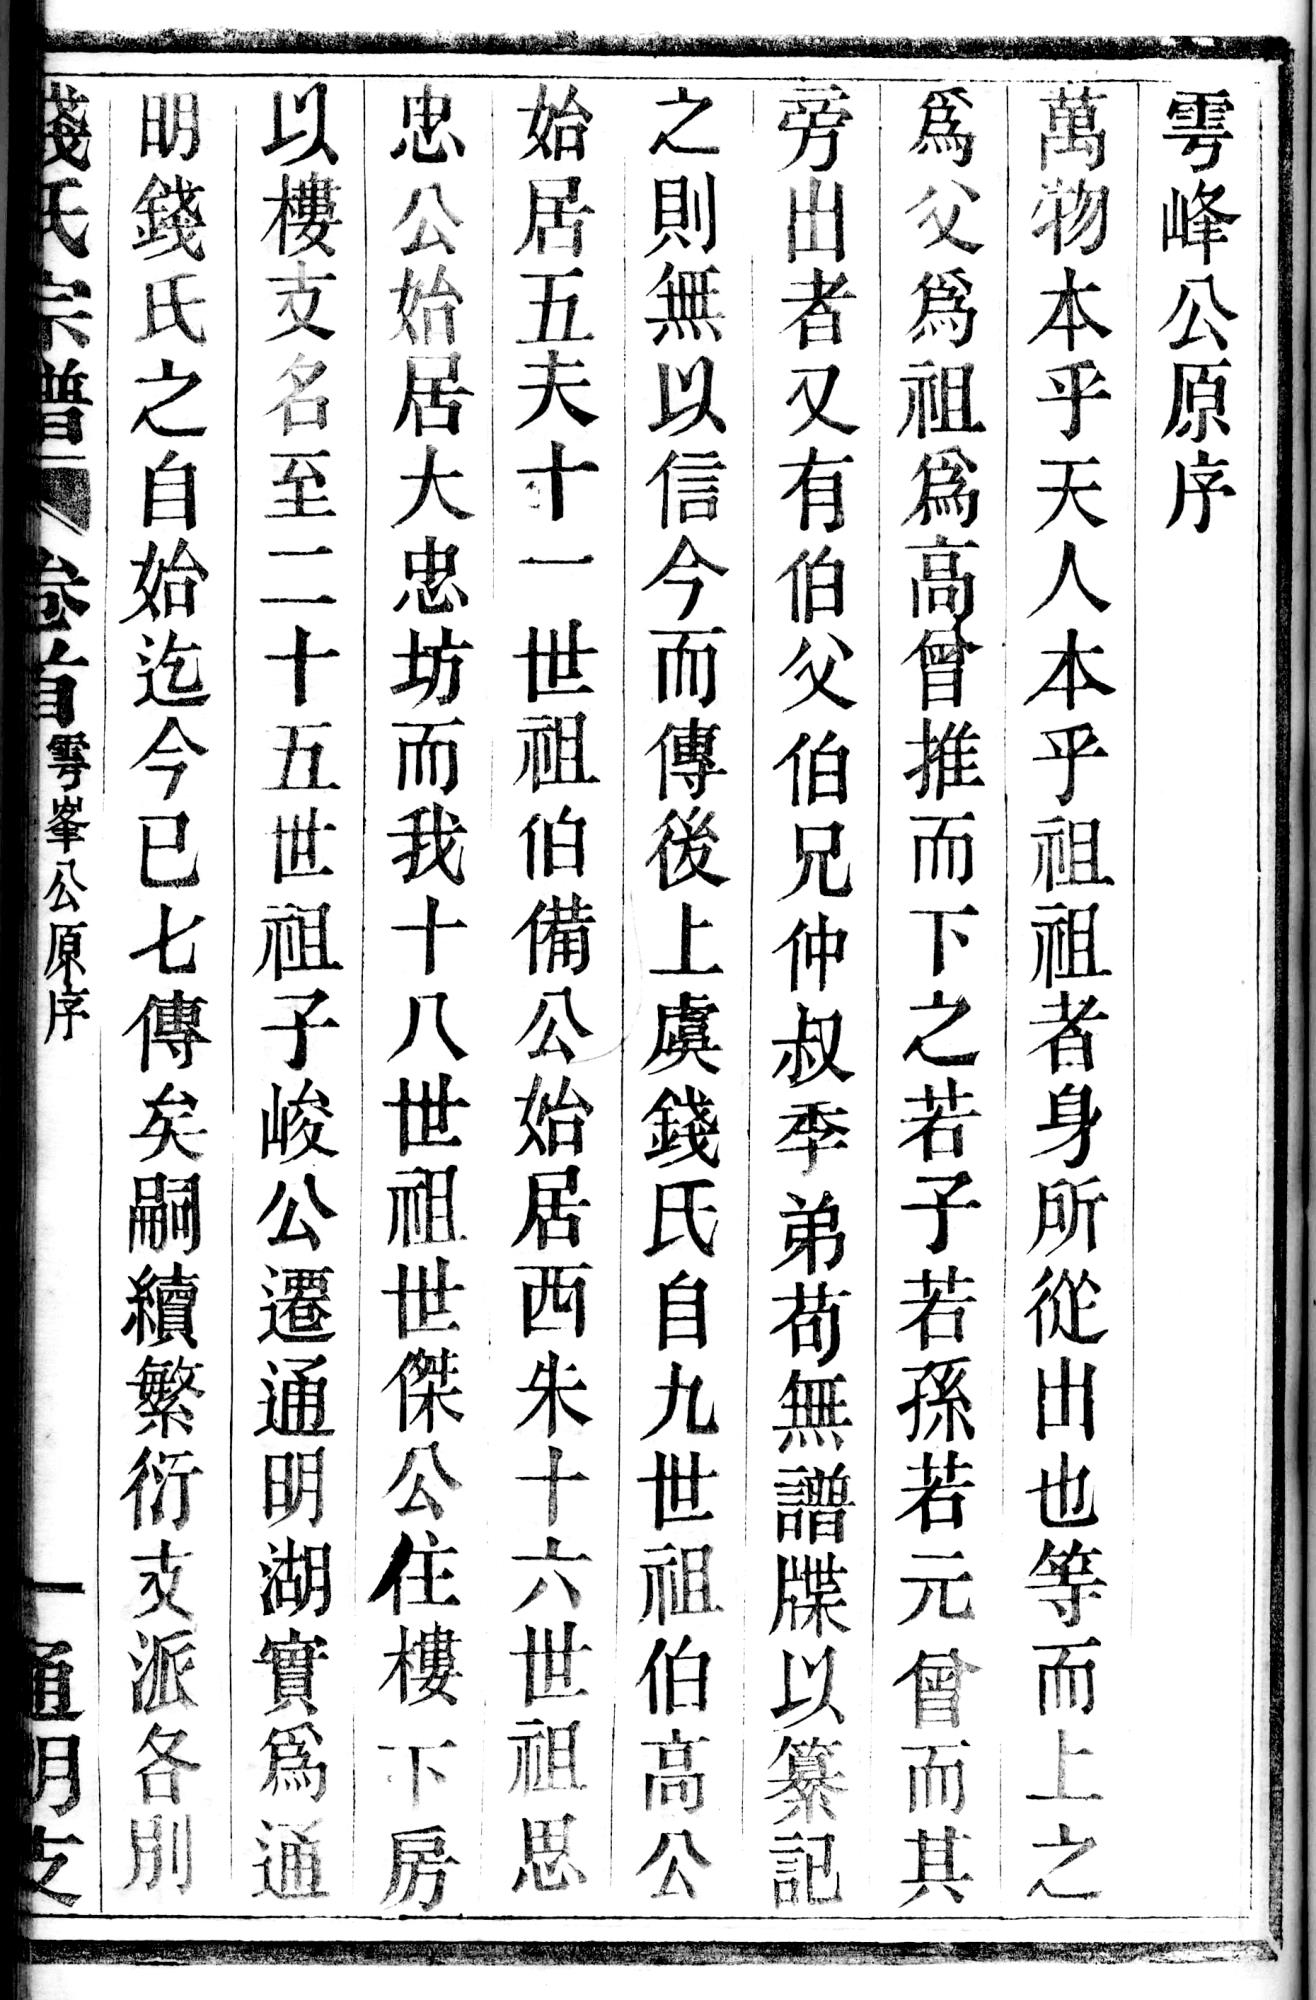 雩峰公原序
萬物本乎天人本乎祖祖者身所從出也等而上之
爲父爲祖爲高曾推而下之若子若孫若元曾而其
旁出者又有伯伯父伯兄仲叔季弟苟無譜牒以纂記
之則無以信今而傳後上虞錢氏自九世祖伯高公
始居五夫十一世祖伯備公始居西朱十六世祖思
忠公始居大忠坊而我十八世祖世傑公住樓下房
以樓支名至二十五世祖子峻公遷通明湖實爲通
明錢氏之自始迄今已七傳矣嗣續繁衍支派各別
錢氏宗譜 卷首 雩峯公原序 一 通明支